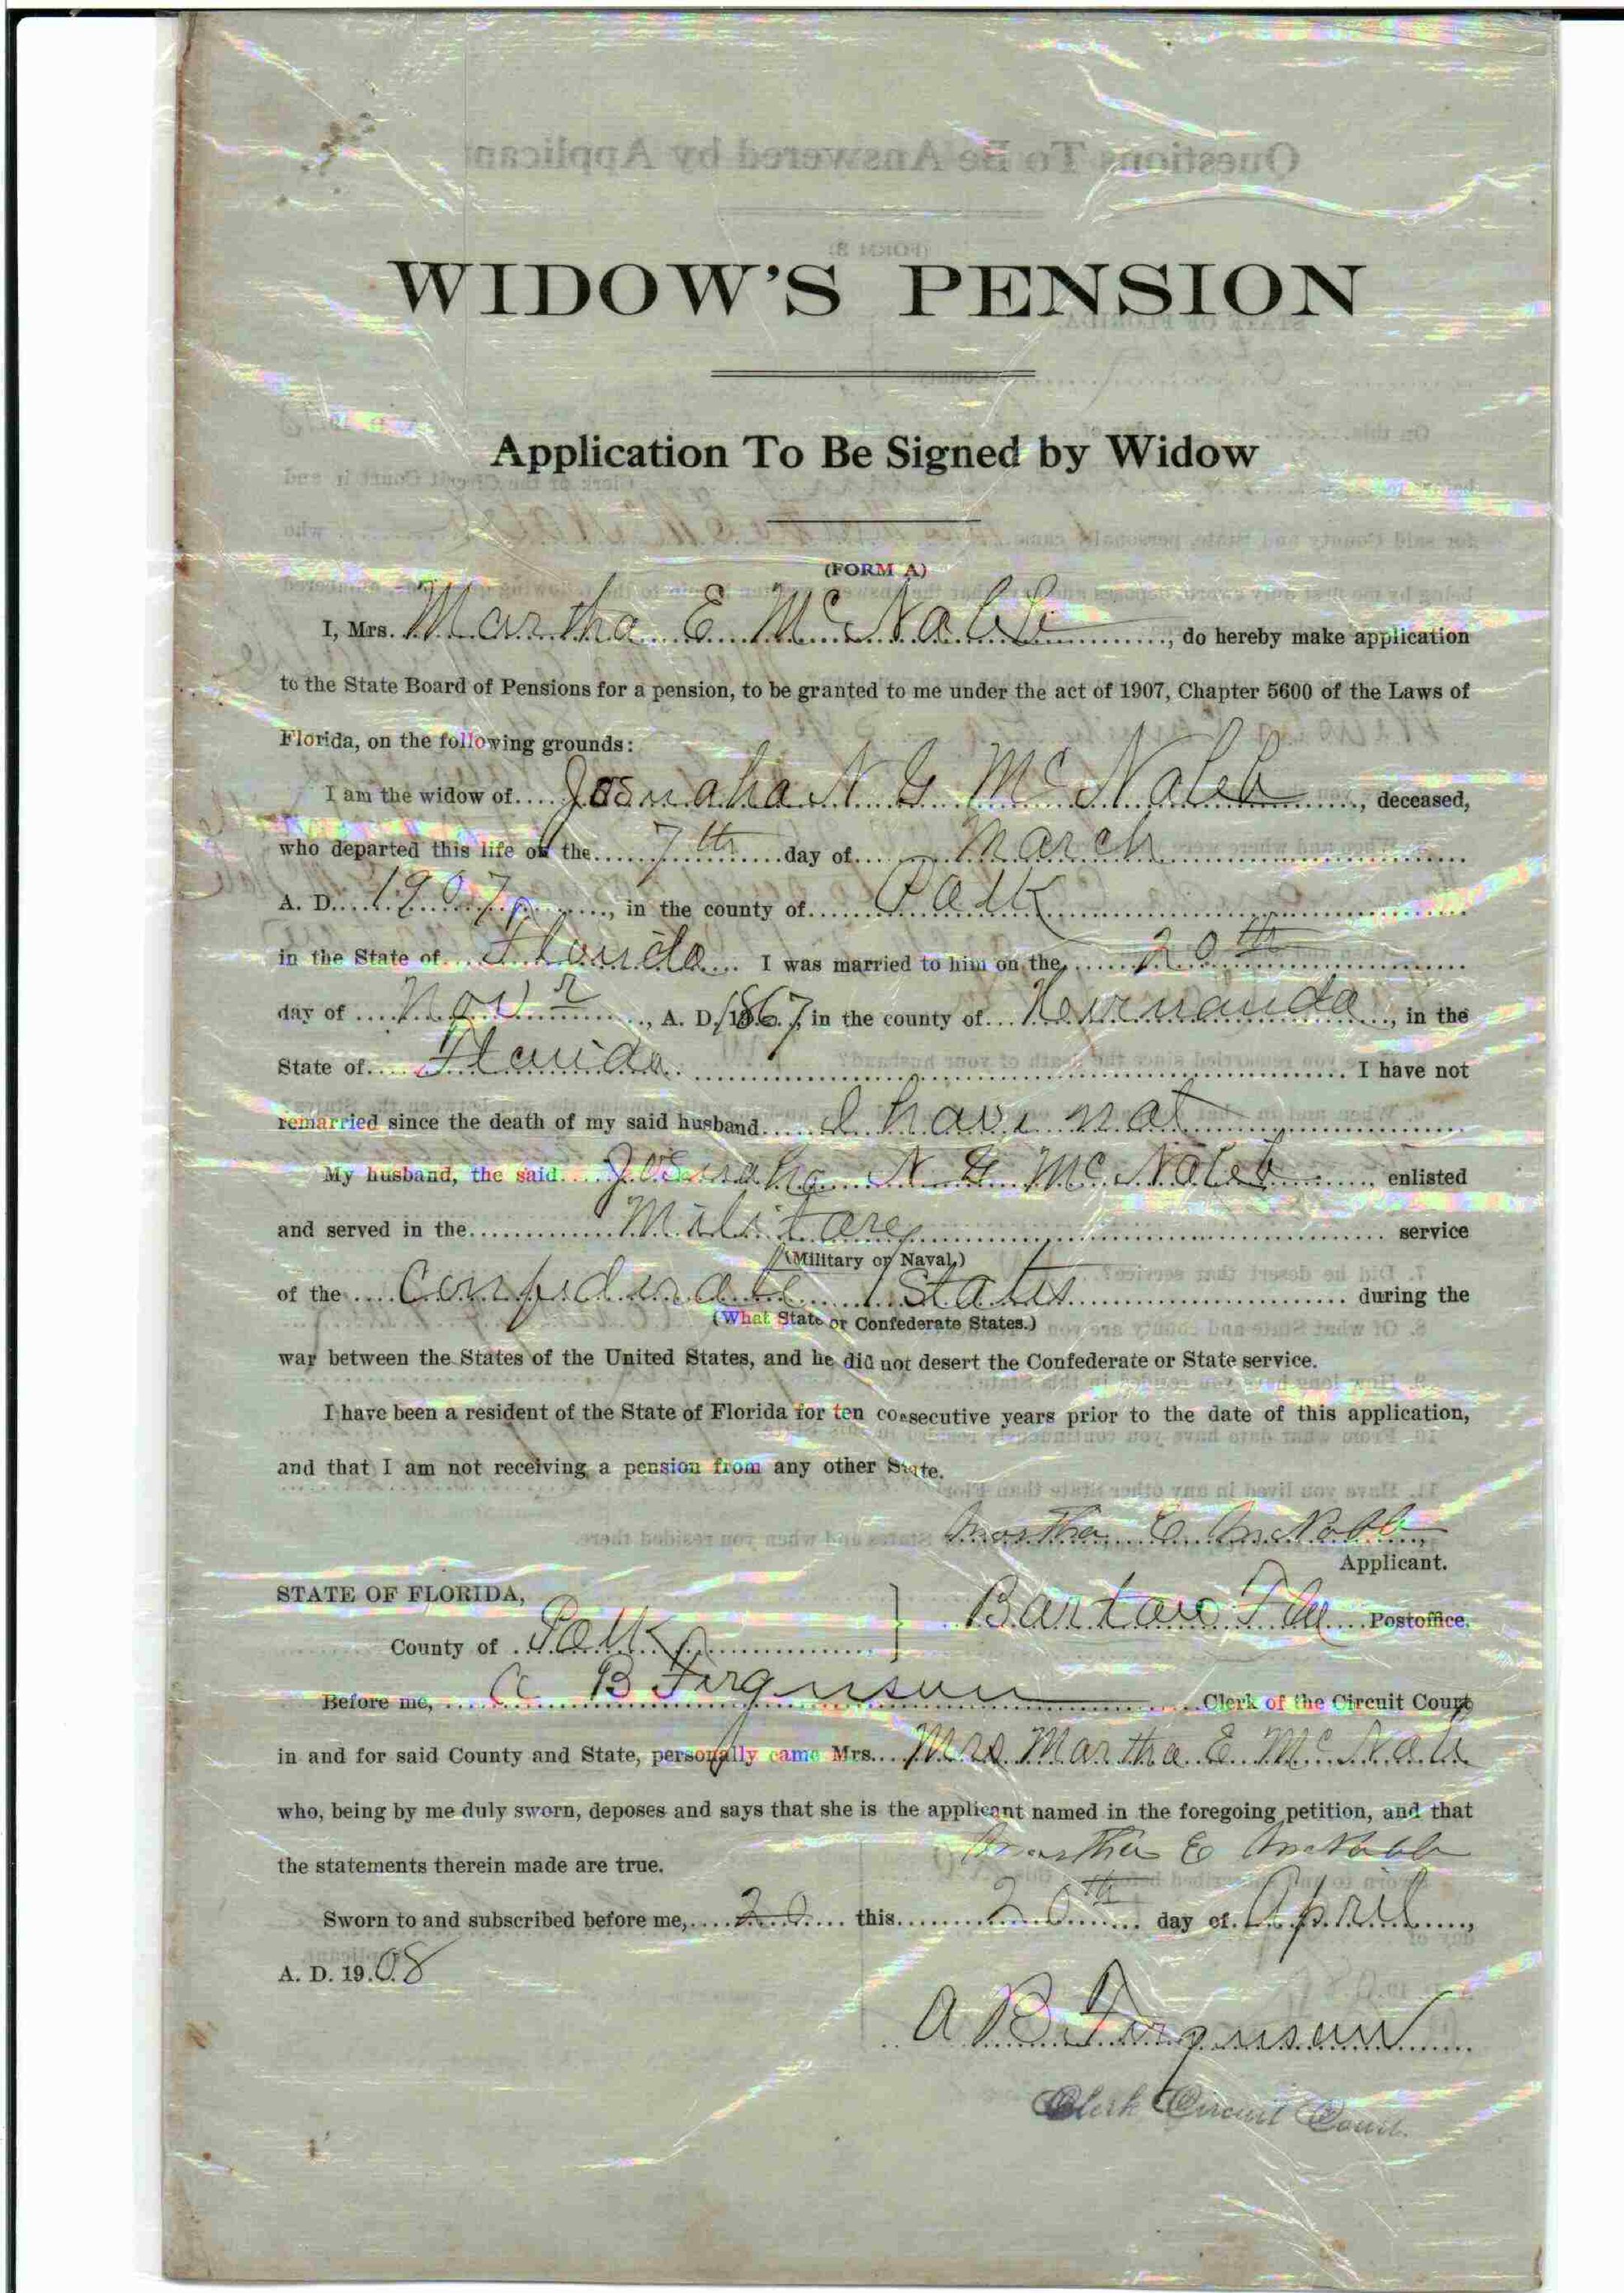 WIDOW'S PENSION
Application To Be Signed by Widow
(FORM A)
I, Mrs. Martha E. McNabb, do hereby make application
to the State Board of Pensions for a pension, to be granted to me under the act of 1907, Chapter 5600 of the Laws of
Florida, on the following grounds:
I am the widow of N G McNabb, deceased,
who departed this life on the 7th day of March
A. D. 1907, in the county of Polk
in the State of Florida I was married to him on the 20th
day of Novr, A. D. 1867, in the county of Hernando, in the
State of Florida I have not
remarried since the death of my said husband I have not
My husband, the said N G McNabb enlisted
and served in the Military service
(Military or Naval.)
of the Confederate States during the
(What State or Confederate States.)
war between the States of the United States, and he did not desert the Confederate or State service.
I have been a resident of the State of Florida for ten consecutive years prior to the date of this application,
and that I am not receiving a pension from any other State.
Martha E McNabb
Applicant.
STATE OF FLORIDA,
Bartow Fla Postoffice.
County of Polk
Before me, A B Ferguson Clerk of the Circuit Court
in and for said County and State, personally came Mrs. Mrs Martha E. McNabb
who, being by me duly sworn, deposes and says that she is the applicant named in the foregoing petition, and that
Martha E McNabb
the statements therein made are true.
Sworn to and subscribed before me, 20 this 20th day of April,
A. D. 1908
A B Ferguson
Clerk Circuit Court.